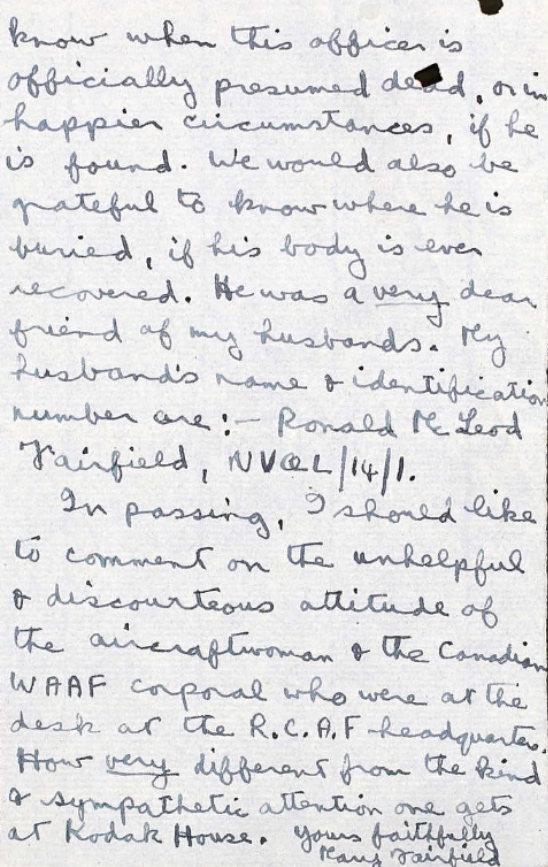 know when this officer is
officially presumed dead, or in
happier circumstances, if he
is found. We would also be
grateful to know where he is
buried, if his body is ever
recovered. He was a very dear
friend of my husbands. My
husband's name & identification
number are:- Ronald McLeod
Fairfield, NVQL/14/1.
In passing, I should like
to comment on the unhelpful
& discourteous attitude of
the aircraftwoman & the Canadian
WAAF corporal who were at the
desk at the R.C.A.F headquarters.
How very different from the kind
& sympathetic attention one gets
at Kodak House. Yours faithfully
Fairfield